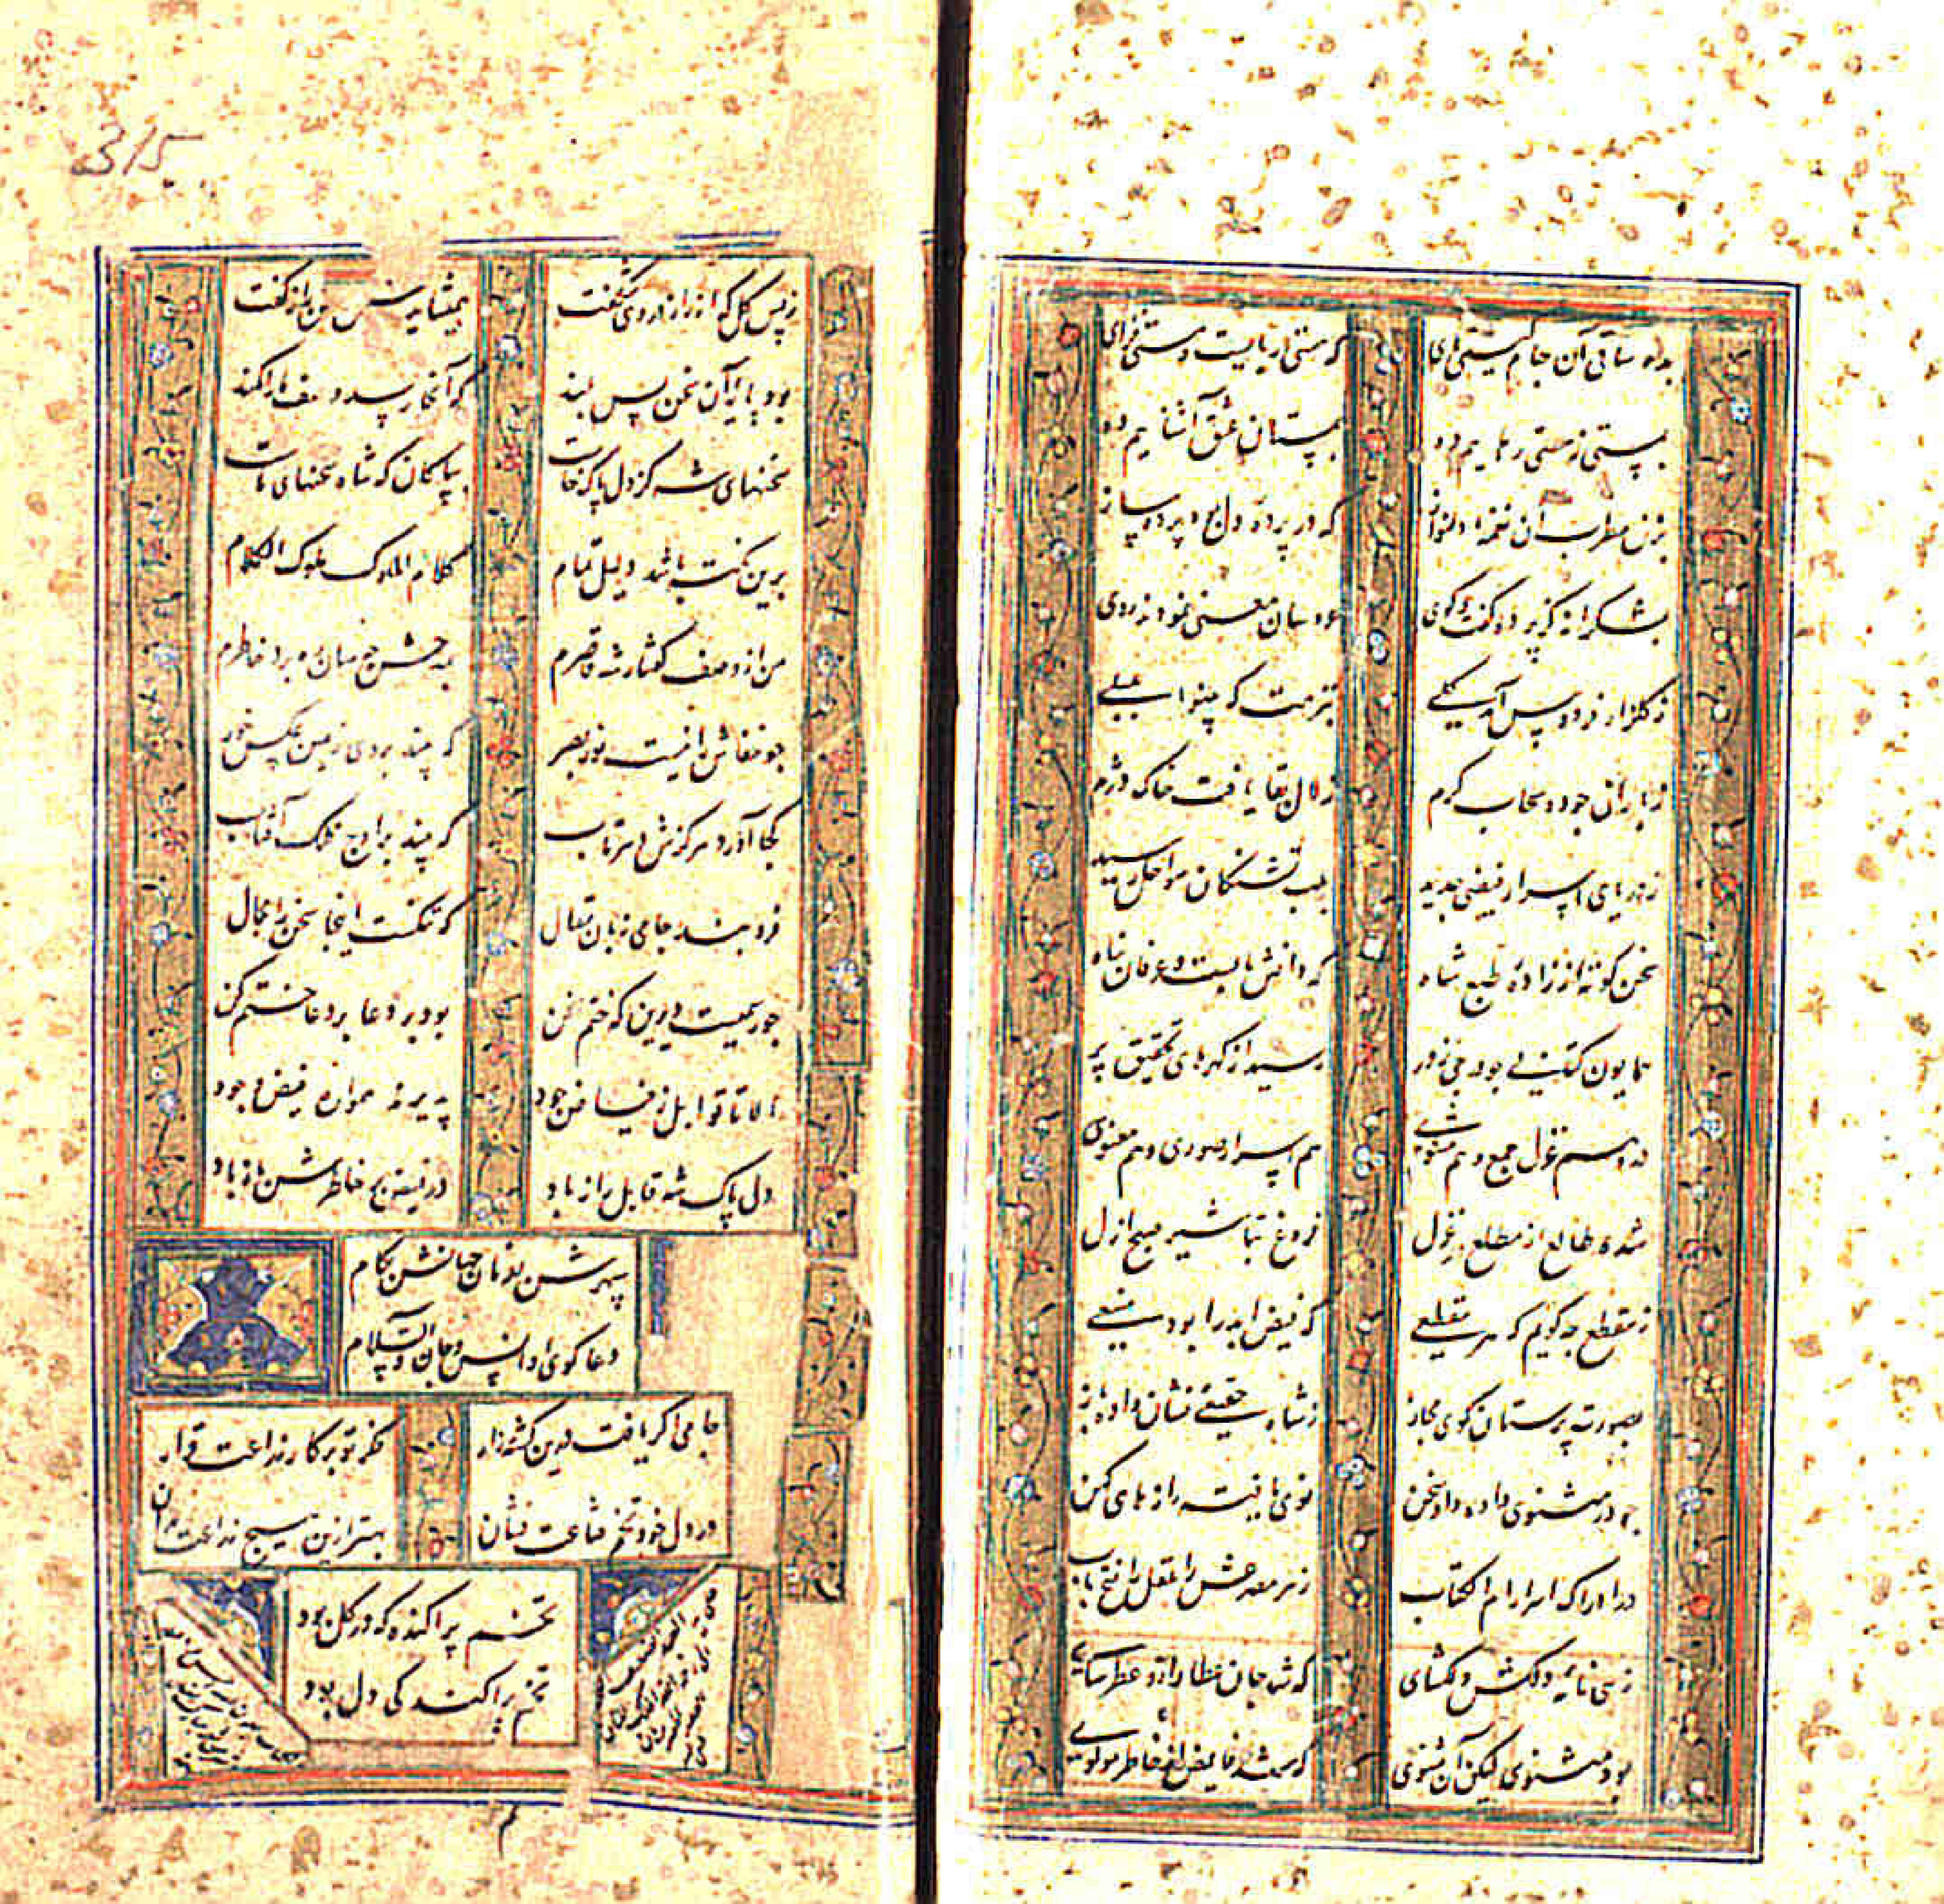 315
بده ساقی آن جام گیتی نمای که هستی ربایست و مستی فزای
بمستی ز هستی رهاییم ده بمستان عشق آشناییم ده
بزن مطرب آن نغمه دلنواز که در پرده دل بود پرده ساز
بشکرانه کز پرده گفت و گوی عروسان معنی نمودند روی
ز گلزار فردوس آمد گلی بنزهت گه بینوا بلبلی
ز باران جود و سحاب کرم زلال بقا یافت خاک دژم
ز دریای اسرار فیضی جدید بلب تشنگان سواحل رسید
سخن کوته از زاده طبع شاه که دانش مآبست و عرفان پناه
همایون کتابی چو درجی ز در رسید از گهرهای تحقیق پر
درو هم غزل درج و هم مثنوی هم اسرار صوری و هم معنوی
شده طالع از مطلع هر غزل فروغ تباشیر صبح ازل
ز مقطع چه گویم که هر مقطعی که فیض ابد را بود منبعی
بصورت پرستان کوی مجاز ز شاه حقیقی نشان داده باز
چو در مثنوی داده داد سخن نوی یافته رازهای کهن
در ادراک اسرار ام الکتاب ز هر مصرعش عقل را فتح باب
زهی نامه دلکش و دلگشای که شد جان عطار ازو عطرسای
بود مثنوی لیکن آن مثنوی که شد فایض از خاطر مولوی
ز بس گل که از راز در وی شکفت همیشایدش راز گفت
بود پایه آن سخن بس بلند که آنجا رسد وصف ما را کمند
سخنهای شه کز دل پاک خاست بپاکان که شاه سخنهای ماست
برین نکته باشد دلیل تمام کلام الملوک ملوک الکلام
من از وصف گفتار شه قاصرم سان ره برد خاطرم
چو خفاش را نیست نور بصر که بیند بروی زمین عکس خور
کجا آورد هرگزش تاب که بیند بر اوج فلک آفتاب
فروبند جامی زبان مقال که تنگست اینجا سخن را مجال
چو رسمیست دیرین که ختم سخن بود بر دعا بر دعا ختم کن
الا تا قوابل ز فیاض جود پذیرند همواره فیض وجود
دل پاک شه قابل راز باد در فیض بر خاطرش باز باد
سپهرش بفرمان جهانش بکام
دعا گوی او انس و جان والسلام
جامی اگر یافت درین کشتزار فکر تو بر کار زراعت قرار
در دل خود تخم قناعت فشان بهتر ازین هیچ زراعت مدان
تخم پراکنده که در گل بود
تخم پراکندگی دل بود